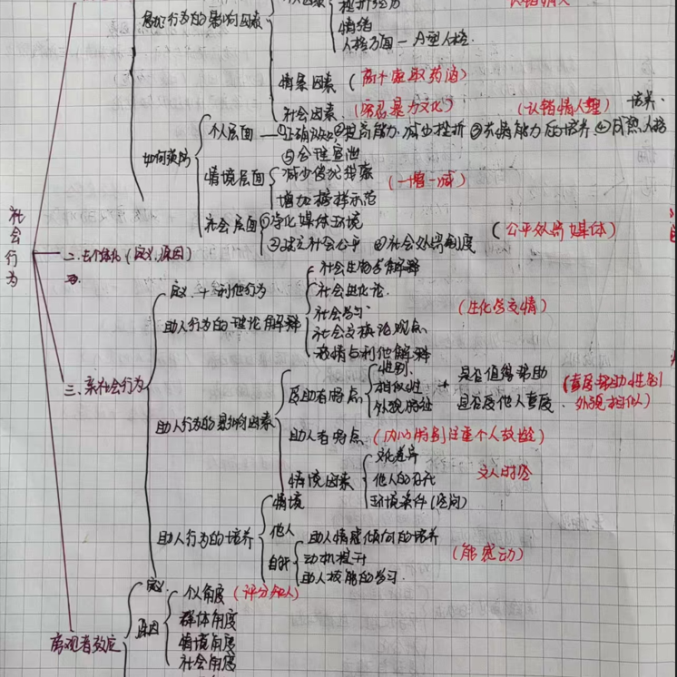 挫折经历
侵犯行为的影响因素
情绪
人格方面 — A型人格
情景因素
社会因素 (认错情人塑)
如何减少
个人层面 — ①正确 ②提高能力、减少挫折 ③共情能力的培养 ④成熟人格
培养
⑤合理宣泄
情境层面
减少
增加榜样示范
(一增一减)
社会层面 ①净化媒体环境
②建立社会公平 ③社会处罚制度
(公平处罚媒体)
社会行为
二.去个体化 (定义,原因)
三.亲社会行为
定义 + 利他行为
助人行为的理论解释
社会生物学解释
社会进化论
社会学习
社会交换论观点
移情与利他解释
(生化学交情)
助人行为的影响因素
受助者特点
性别
相似性
外观特征
+ 是否值得帮助
是否受他人喜爱
外观相似)
助人者特点
情境因素
文化差异
他人的存在
环境条件
文人时空
助人行为的培养
情境
他人
自身
助人情感倾向的培养
动机提升
助人技能的学习
(能感动)
旁观者效应
定义
原因
个人角度
群体角度
情境角度
社会角度